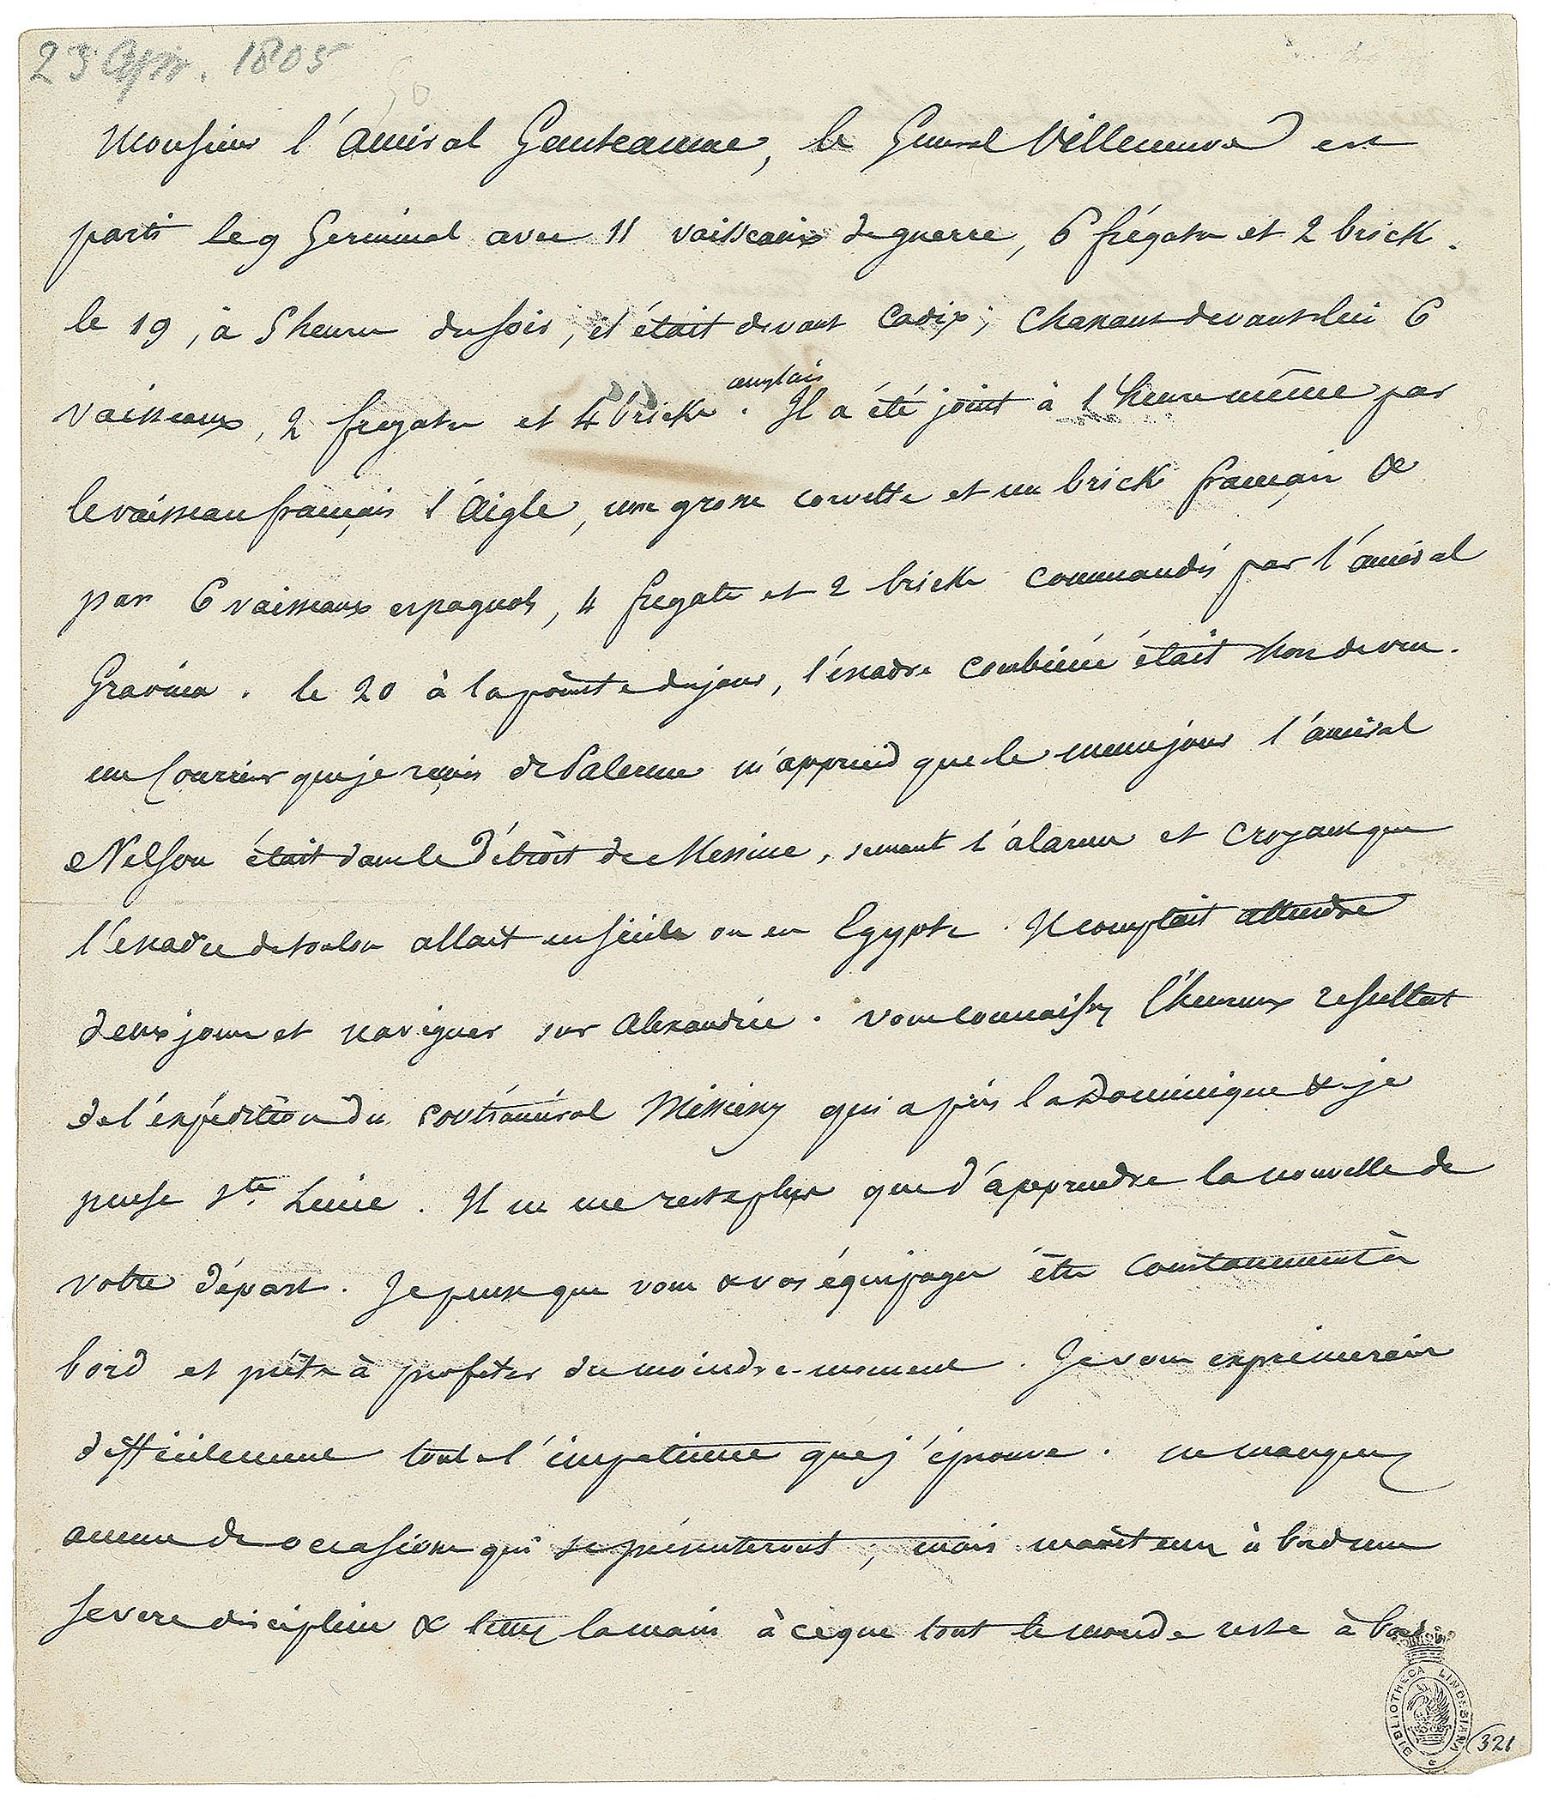 23 Apr. 1805
Monsieur l'amiral Ganteaume, le General Villeneuve est
parti le 9 Germinal avec 11 vaisseaux de guerre, 6 frégates et 2 brick.
le 19, à 5 heures du soir, il était devant Cadix; chassant devant lui 6
anglais
vaisseaux, 2 fregates et 4 bricks. Il a été joint à l'heure même par
le vaisseau français l'Aigle, une grosse corvette et un brick français &
par 6 vaisseaux espagnols, 4 fregates et 2 bricks commandés par l'amiral
Gravina. le 20 à la pointe du jour, l'escadre combinée était hors de vue.
un Courrier que je reçois de Palerme m'apprend que le meme jour l'amiral
Nelson était dans le Détroit de Messine, semant l'alarme et croyant que
l'escadre de toulon allait en Sicile ou en Egypte. Il comptait attendre
deux jours et naviguer sur Alexandrie. Vous connaissez l'heureux resultat
de l'expédition du contramiral Missiessy qui a pris la Dominique & je
pense Ste Lucie. Il ne me reste plus que d'apprendre la nouvelle de
votre départ. Je pense que vous & vos équipages êtes constamment à
bord et prêts à profiter du moindre moment. Je vous exprimerais
difficilement toute l'impatience que j'éprouve. ne manquez
aucune des occasions qui se présenteront; mais maintenez à bord une
severe discipline & tenez la main à ce que tout le monde reste à bord
BIBLIOTHECA LINDESIANA
321